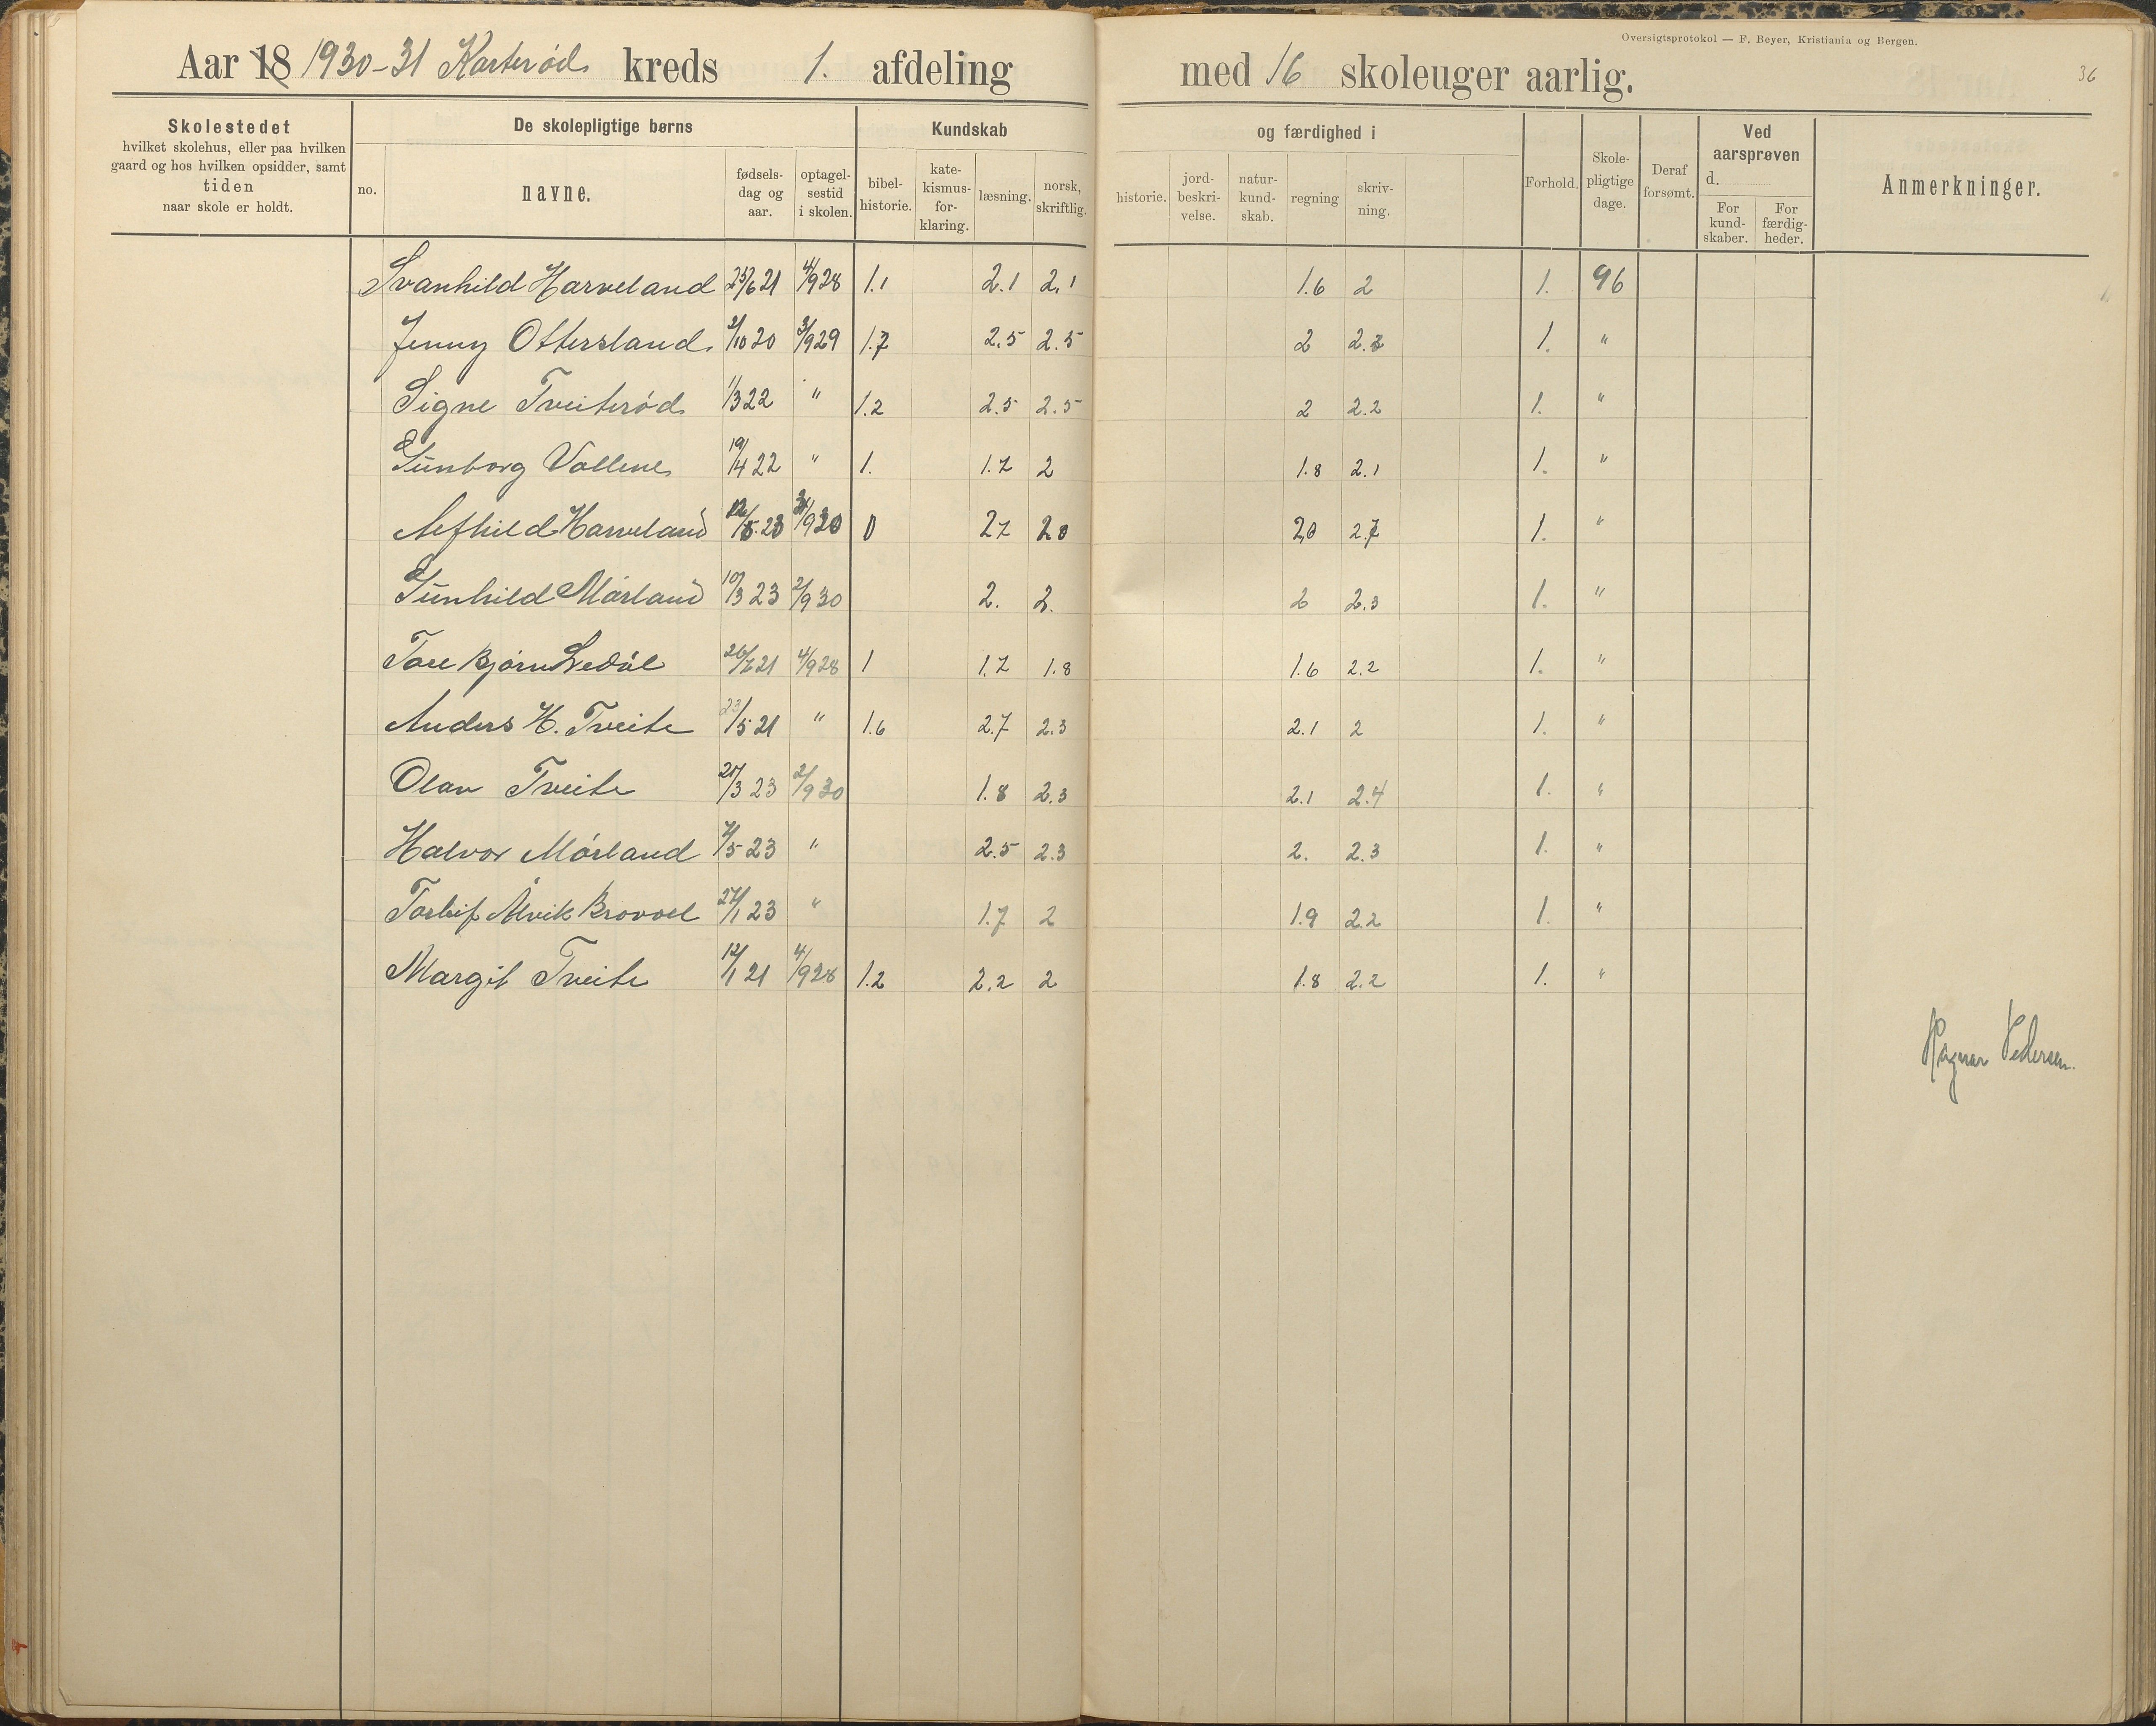 Oversigtsprotokol — F. Beyer, Kristiania og Bergen.
36
Aar 18 1930-31 Karterød kreds 1. afdeling med 16 skoleuger aarlig.
Skolestedet
hvilket skolehus, eller paa hvilken
gaard og hos hvilken opsidder, samt
tiden
naar skole er holdt.
De skolepligtige børns
no.
navne.
fødsels-
dag og
aar.
optagel-
sestid
i skolen.
Kundskab
bibel-
historie.
kate-
kismus-
for-
klaring.
læsning.
norsk,
skriftlig.
og færdighed i
historie.
jord-
beskri-
velse.
natur-
kund-
skab.
regning
skriv-
ning.
Forhold.
Skole-
pligtige
dage.
Deraf
forsømt.
Ved
aarsprøven
d.
For
kund-
skaber.
For
færdig-
heder.
Anmerkninger.
Svanhild Harveland 25/6 21 4/9 28 1.1 2.1 2.1 1.6 2 1. 96
Jenny Ottersland 2/10 20 3/9 29 1.7 2.5 2.5 2 2.3 1. "
Signe Tveiterød 1/3 22 " 1.2 2.5 2.5 2 2.2 1. "
Gunborg Vallene 19/4 22 " 1. 1.7 2 1.8 2.1 1. "
Alfhild Harveland 23 930 0 27 20 20 2.7 1. "
Gunhild Mørland 10/3 23 2/9 30 2. 2. 2 2.3 1. "
Tore Bjørn Svedal 26/7 21 4/9 28 1 1.7 1.8 1.6 2.2 1. "
Anders H. Tveite 23/5 21 " 1.6 2.7 2.3 2.1 2 1. "
Olav Tveite 21/3 23 2/9 30 1.8 2.3 2.1 2.4 1. "
Halvor Mørland 4/5 23 " 2.5 2.3 2. 2.3 1. "
Torleif Alvik Brovoll 27/1 23 " 1.7 2 1.9 2.2 1. "
Margit Tveite 12/1 21 4/9 28 1.2 2.2 2 1.8 2.2 1. "
Ragnar Pedersen.